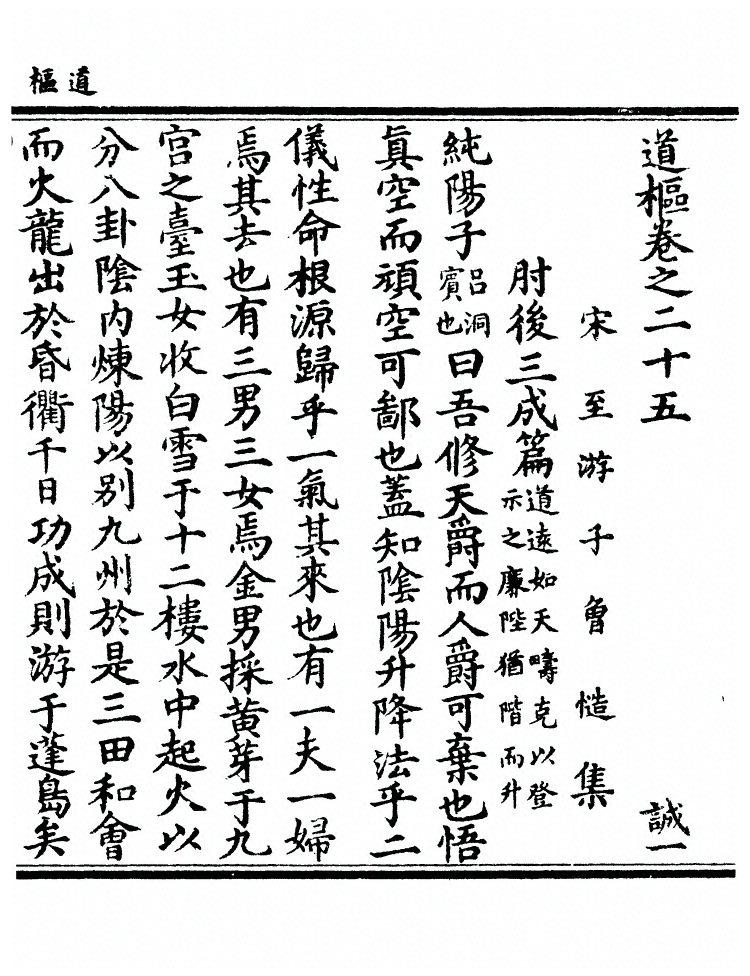 道樞
道樞卷之二十五 誠一
宋至游子曾慥集
肘後三成篇 道遠如天疇克以登示之廉陛猶階而升
純陽子呂洞賓也曰吾修天爵而人爵可棄也悟
眞空而頑空可鄙也蓋知陰陽升降法乎二
儀性命根源歸乎一氣其來也有一夫一婦
焉其去也有三男三女焉金男採黄芽于九
宫之臺玉女收白雪于十二樓水中起火以
分八卦陰内煉陽以别九州於是三田和會
而火龍出於昏衢千日功成則游于蓬島矣